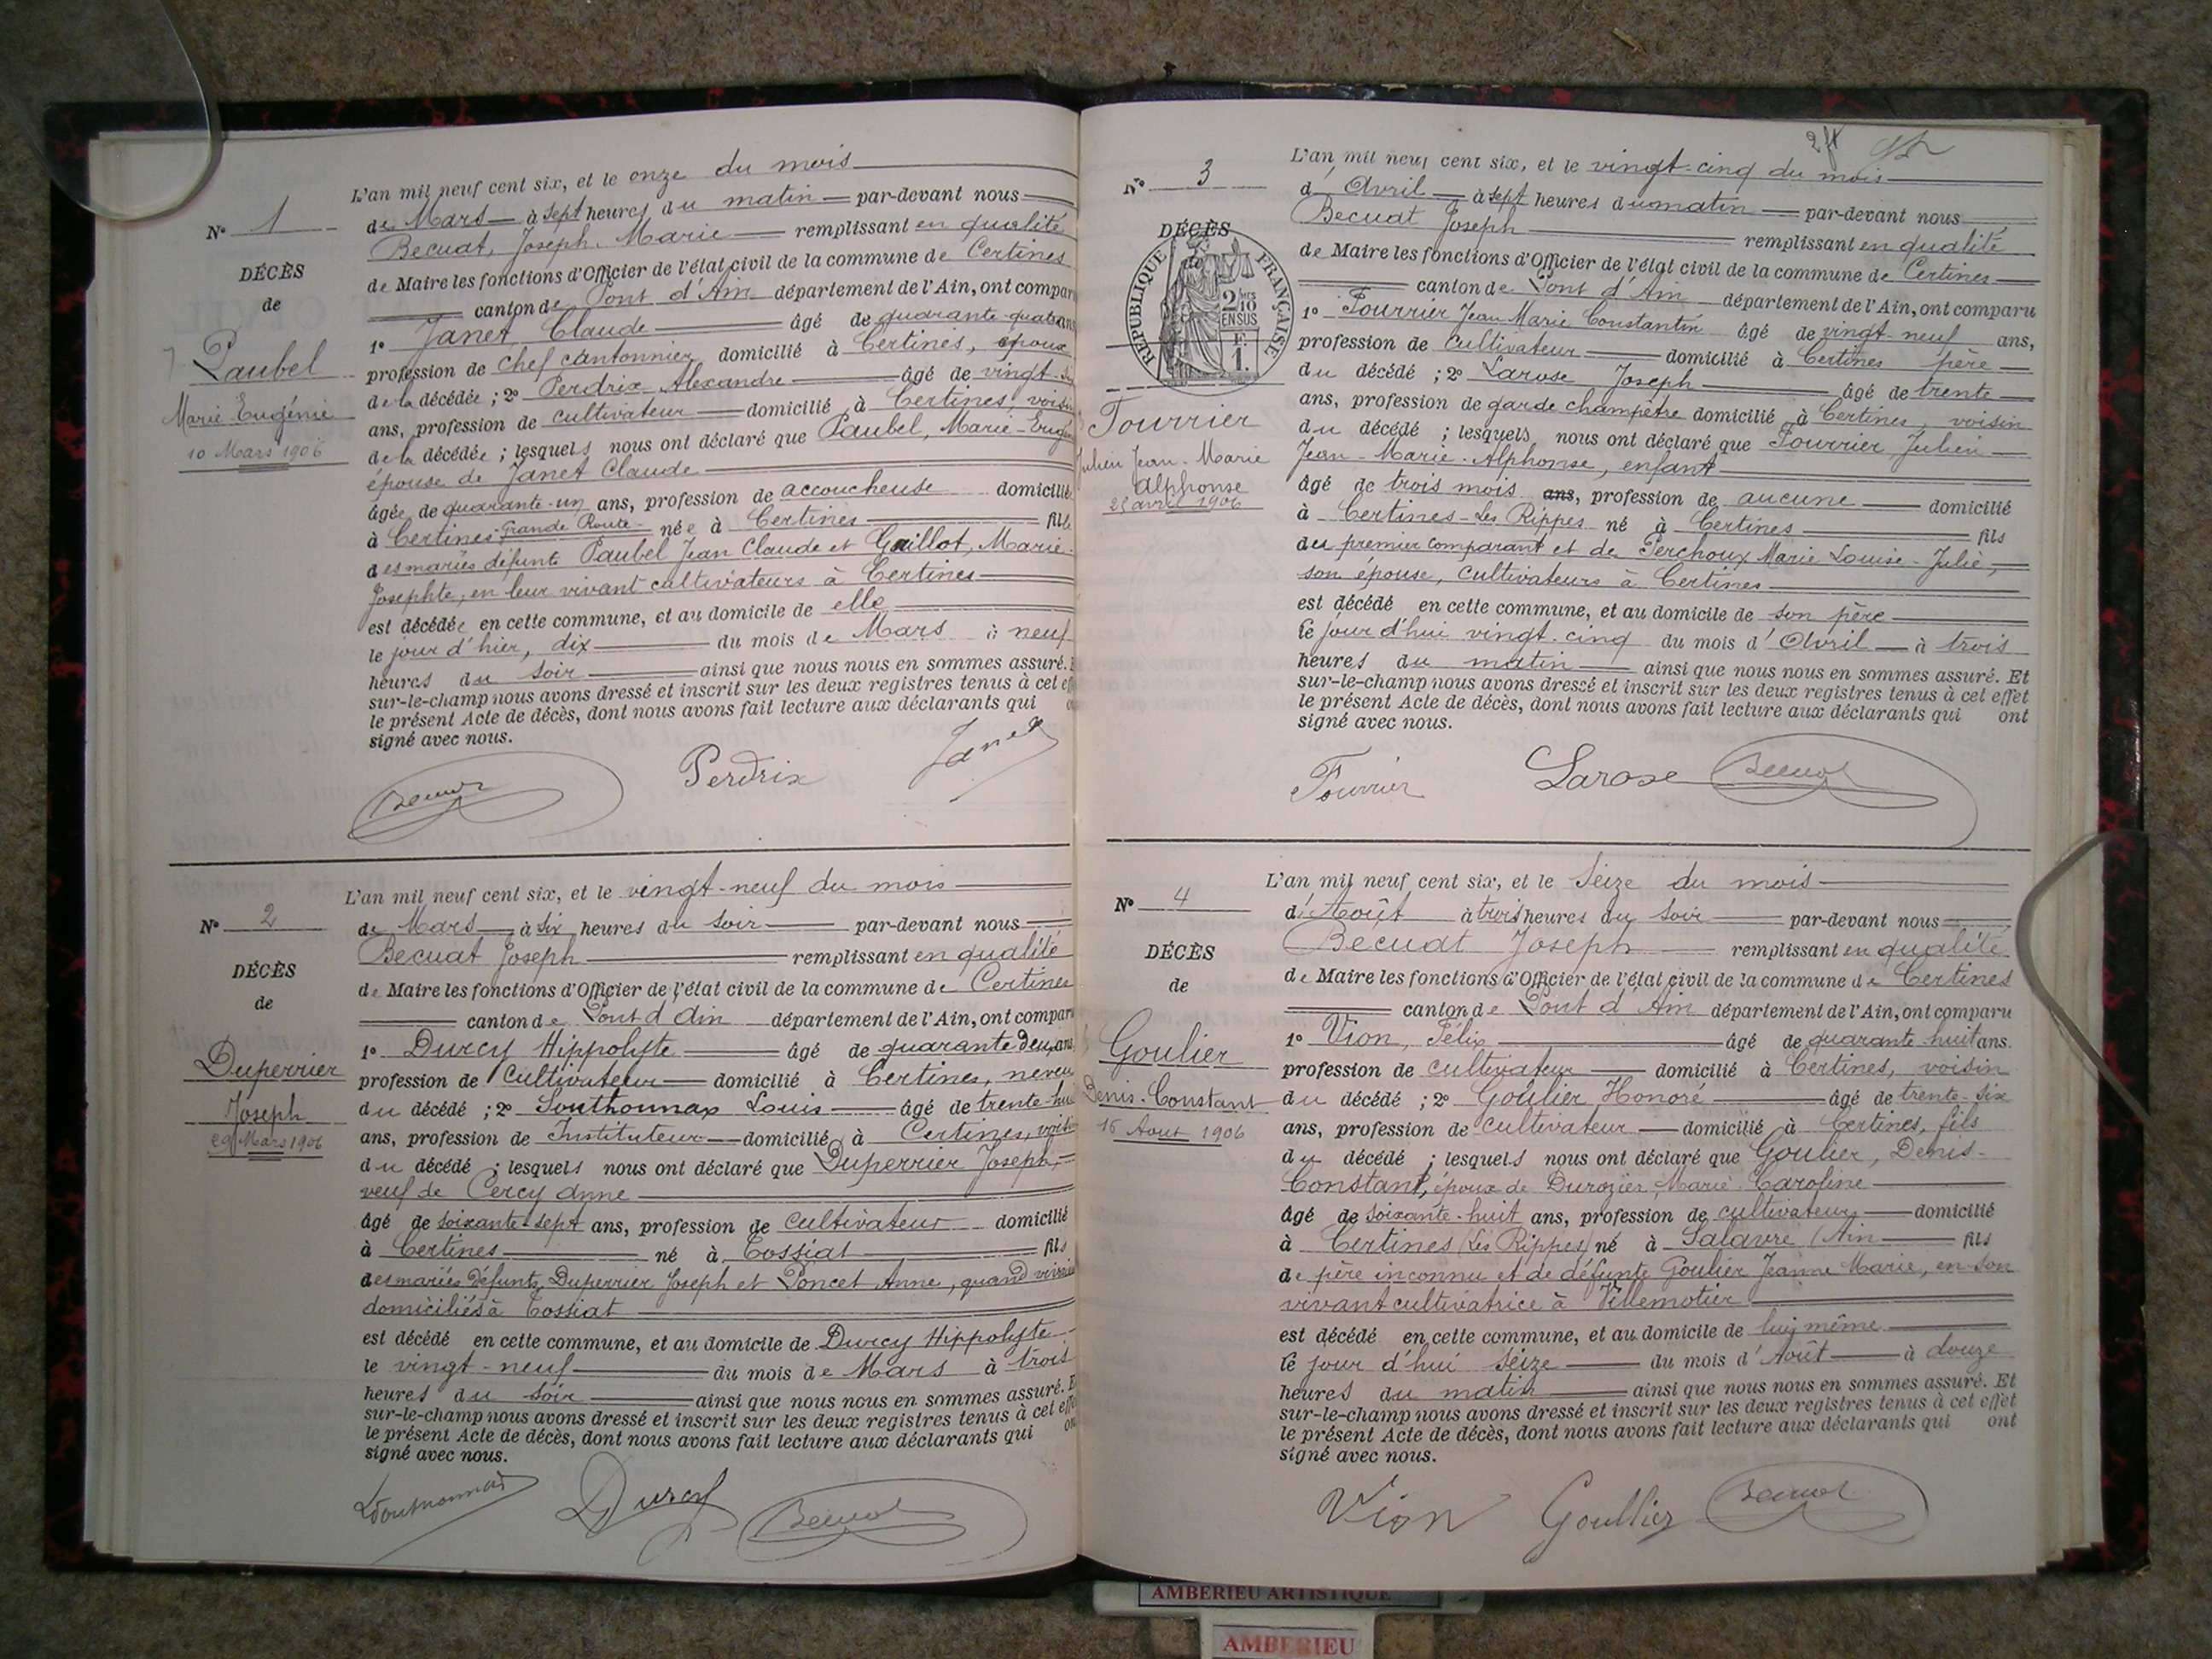 N° 1
DÉCÈS
de
Paubel
Marie Eugénie
10 Mars 1906
L'an mil neuf cent six, et le onze du mois
de Mars à sept heures du matin par-devant nous
Becuat, Joseph Marie remplissant en qualité
de Maire les fonctions d'Officier de l'état civil de la commune de Certines
canton de Pont d'Ain département de l'Ain, ont compar
1° Janet Claude âgé de quarante-quatre ans
profession de chef cantonnier domicilié à Certines, époux
de la décédée ; 2° Perdrix Alexandre âgé de vingt
ans, profession de cultivateur domicilié à Certines, voisin
de la décédée ; lesquels nous ont déclaré que Paubel, Marie-Eugé
épouse de Janet Claude
âgée de quarante-un ans, profession de accoucheuse domicilié
à Certines Grande Route née à Certines fille
des mariés défunts Paubel Jean Claude et Guillot, Marie
Josephte, en leur vivant cultivateurs à Certines
est décédée en cette commune, et au domicile de elle
le jour d'hier, dix du mois de Mars à neuf
heures du soir ainsi que nous nous en sommes assuré.
sur-le-champ nous avons dressé et inscrit sur les deux registres tenus à cet eff
le présent Acte de décès, dont nous avons fait lecture aux déclarants qui
signé avec nous.
Becuat Perdrix Janet
N° 2
DÉCÈS
de
Duperrier
Joseph
29 Mars 1906
L'an mil neuf cent six, et le vingt-neuf du mois
de Mars à six heures du soir par-devant nous
Becuat Joseph remplissant en qualité
de Maire les fonctions d'Officier de l'état civil de la commune de Certines
canton de Pont d'Ain département de l'Ain, ont compar
1° Durcy Hippolyte âgé de quarante deux ans
profession de cultivateur domicilié à Certines, neveu
du décédé ; 2° Southonnax Louis âgé de trente-hu
ans, profession de Instituteur domicilié à Certines, voisi
du décédé ; lesquels nous ont déclaré que Duperrier Joseph,
veuf de Cercy Anne
âgé de soixante-sept ans, profession de cultivateur domicilié
à Certines né à Tossiat fils
des mariés défunts Duperrier Joseph et Poncet Anne, quand vivai
domiciliés à Tossiat
est décédé en cette commune, et au domicile de Durcy Hippolyte
le vingt-neuf du mois de Mars à trois
heures du soir ainsi que nous nous en sommes assuré. E
sur-le-champ nous avons dressé et inscrit sur les deux registres tenus à cet effe
le présent Acte de décès, dont nous avons fait lecture aux déclarants qui on
signé avec nous.
LSouthonnax Durcy Becuat
N° 3
DÉCÈS
RÉPUBLIQUE FRANÇAISE
2/10 EN SUS
F. 1.
Fourrier
Julien Jean-Marie
Alphonse
25 avril 1906
L'an mil neuf cent six, et le vingt-cinq du mois
d'Avril à sept heures du matin par-devant nous
Becuat Joseph remplissant en qualité
de Maire les fonctions d'Officier de l'état civil de la commune de Certines
canton de Pont d'Ain département de l'Ain, ont comparu
1° Fourrier Jean Marie Constantin âgé de vingt-neuf ans,
profession de cultivateur domicilié à Certines père
du décédé ; 2° Larose Joseph âgé de trente
ans, profession de garde champêtre domicilié à Certines, voisin
du décédé ; lesquels nous ont déclaré que Fourrier Julien
Jean-Marie-Alphonse, enfant
âgé de trois mois ans, profession de aucune domicilié
à Certines-Les Rippes né à Certines fils
du premier comparant et de Perchoux Marie Louise-Julie,
son épouse, cultivateurs à Certines
est décédé en cette commune, et au domicile de son père
le jour d'hui vingt-cinq du mois d'Avril à trois
heures du matin ainsi que nous nous en sommes assuré. Et
sur-le-champ nous avons dressé et inscrit sur les deux registres tenus à cet effet
le présent Acte de décès, dont nous avons fait lecture aux déclarants qui ont
signé avec nous.
Fourrier Larose Becuat
N° 4
DÉCÈS
de
Goulier
Denis-Constant
16 Aout 1906
L'an mil neuf cent six, et le Seize du mois
d'Août à trois heures du soir par-devant nous
Becuat Joseph remplissant en qualité
de Maire les fonctions d'Officier de l'état civil de la commune de Certines
canton de Pont d'Ain département de l'Ain, ont comparu
1° Vion, Félix âgé de quarante huit ans.
profession de cultivateur domicilié à Certines, voisin
du décédé ; 2° Goulier Honoré âgé de trente-six
ans, profession de cultivateur domicilié à Certines, fils
du décédé ; lesquels nous ont déclaré que Goulier, Denis-
Constant, époux de Durozier Marie Caroline
âgé de soixante-huit ans, profession de cultivateur domicilié
à Certines (Les Rippes) né à Salavre (Ain fils
de père inconnu et de défunte Goulier Jeanne Marie, en son
vivant cultivatrice à Villemotier
est décédé en cette commune, et au domicile de lui même
le jour d'hui seize du mois d'Août à douze
heures du matin ainsi que nous nous en sommes assuré. Et
sur-le-champ nous avons dressé et inscrit sur les deux registres tenus à cet effet
le présent Acte de décès, dont nous avons fait lecture aux déclarants qui ont
signé avec nous.
Vion Goullier Becuat
AMBERIEU ARTISTIQUE
AMBERIEU